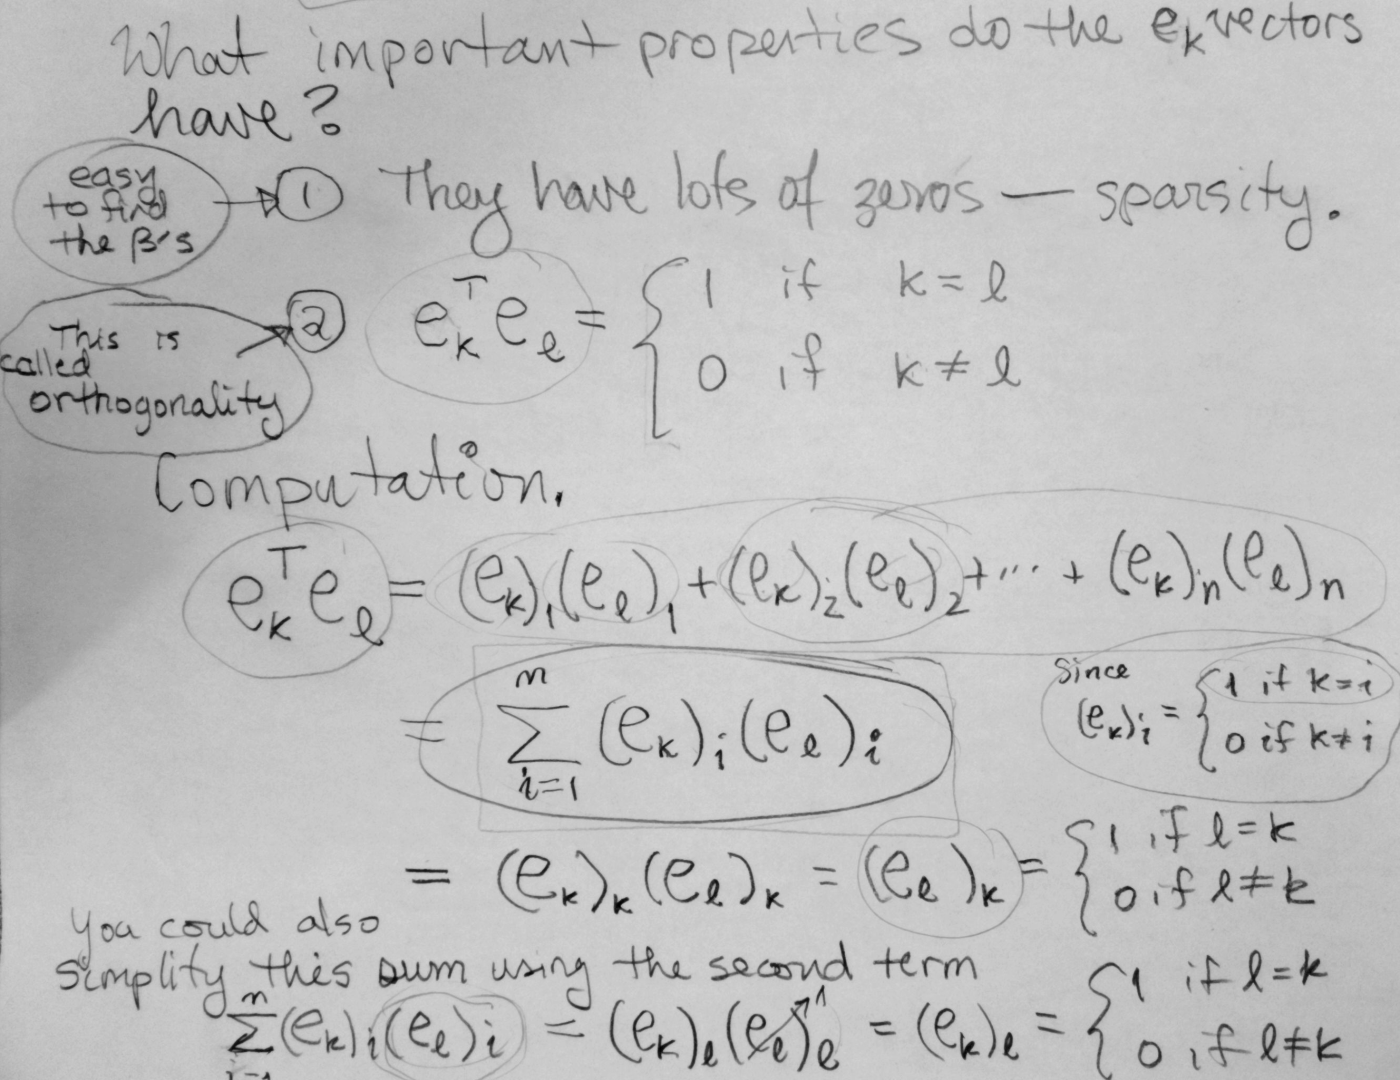 What important properties do the e_k vectors
have?
easy
to find
the β's
→ ① They have lots of zeros — sparsity.
This is
called
orthogonality
→ ② e_k^T e_ℓ = { 1 if k = ℓ
0 if k ≠ ℓ
Computation.
e_k^T e_ℓ = (e_k)_1 (e_ℓ)_1 + (e_k)_2 (e_ℓ)_2 + ··· + (e_k)_n (e_ℓ)_n
= ∑_{i=1}^{n} (e_k)_i (e_ℓ)_i
Since
(e_k)_i = { 1 if k = i
0 if k ≠ i
= (e_k)_k (e_ℓ)_k = (e_ℓ)_k = { 1 if ℓ = k
0 if ℓ ≠ k
You could also
simplify this sum using the second term
∑_{i=1}^{n} (e_k)_i (e_ℓ)_i = (e_k)_ℓ (e_ℓ)_ℓ^{↗1} = (e_k)_ℓ = { 1 if ℓ = k
0 if ℓ ≠ k